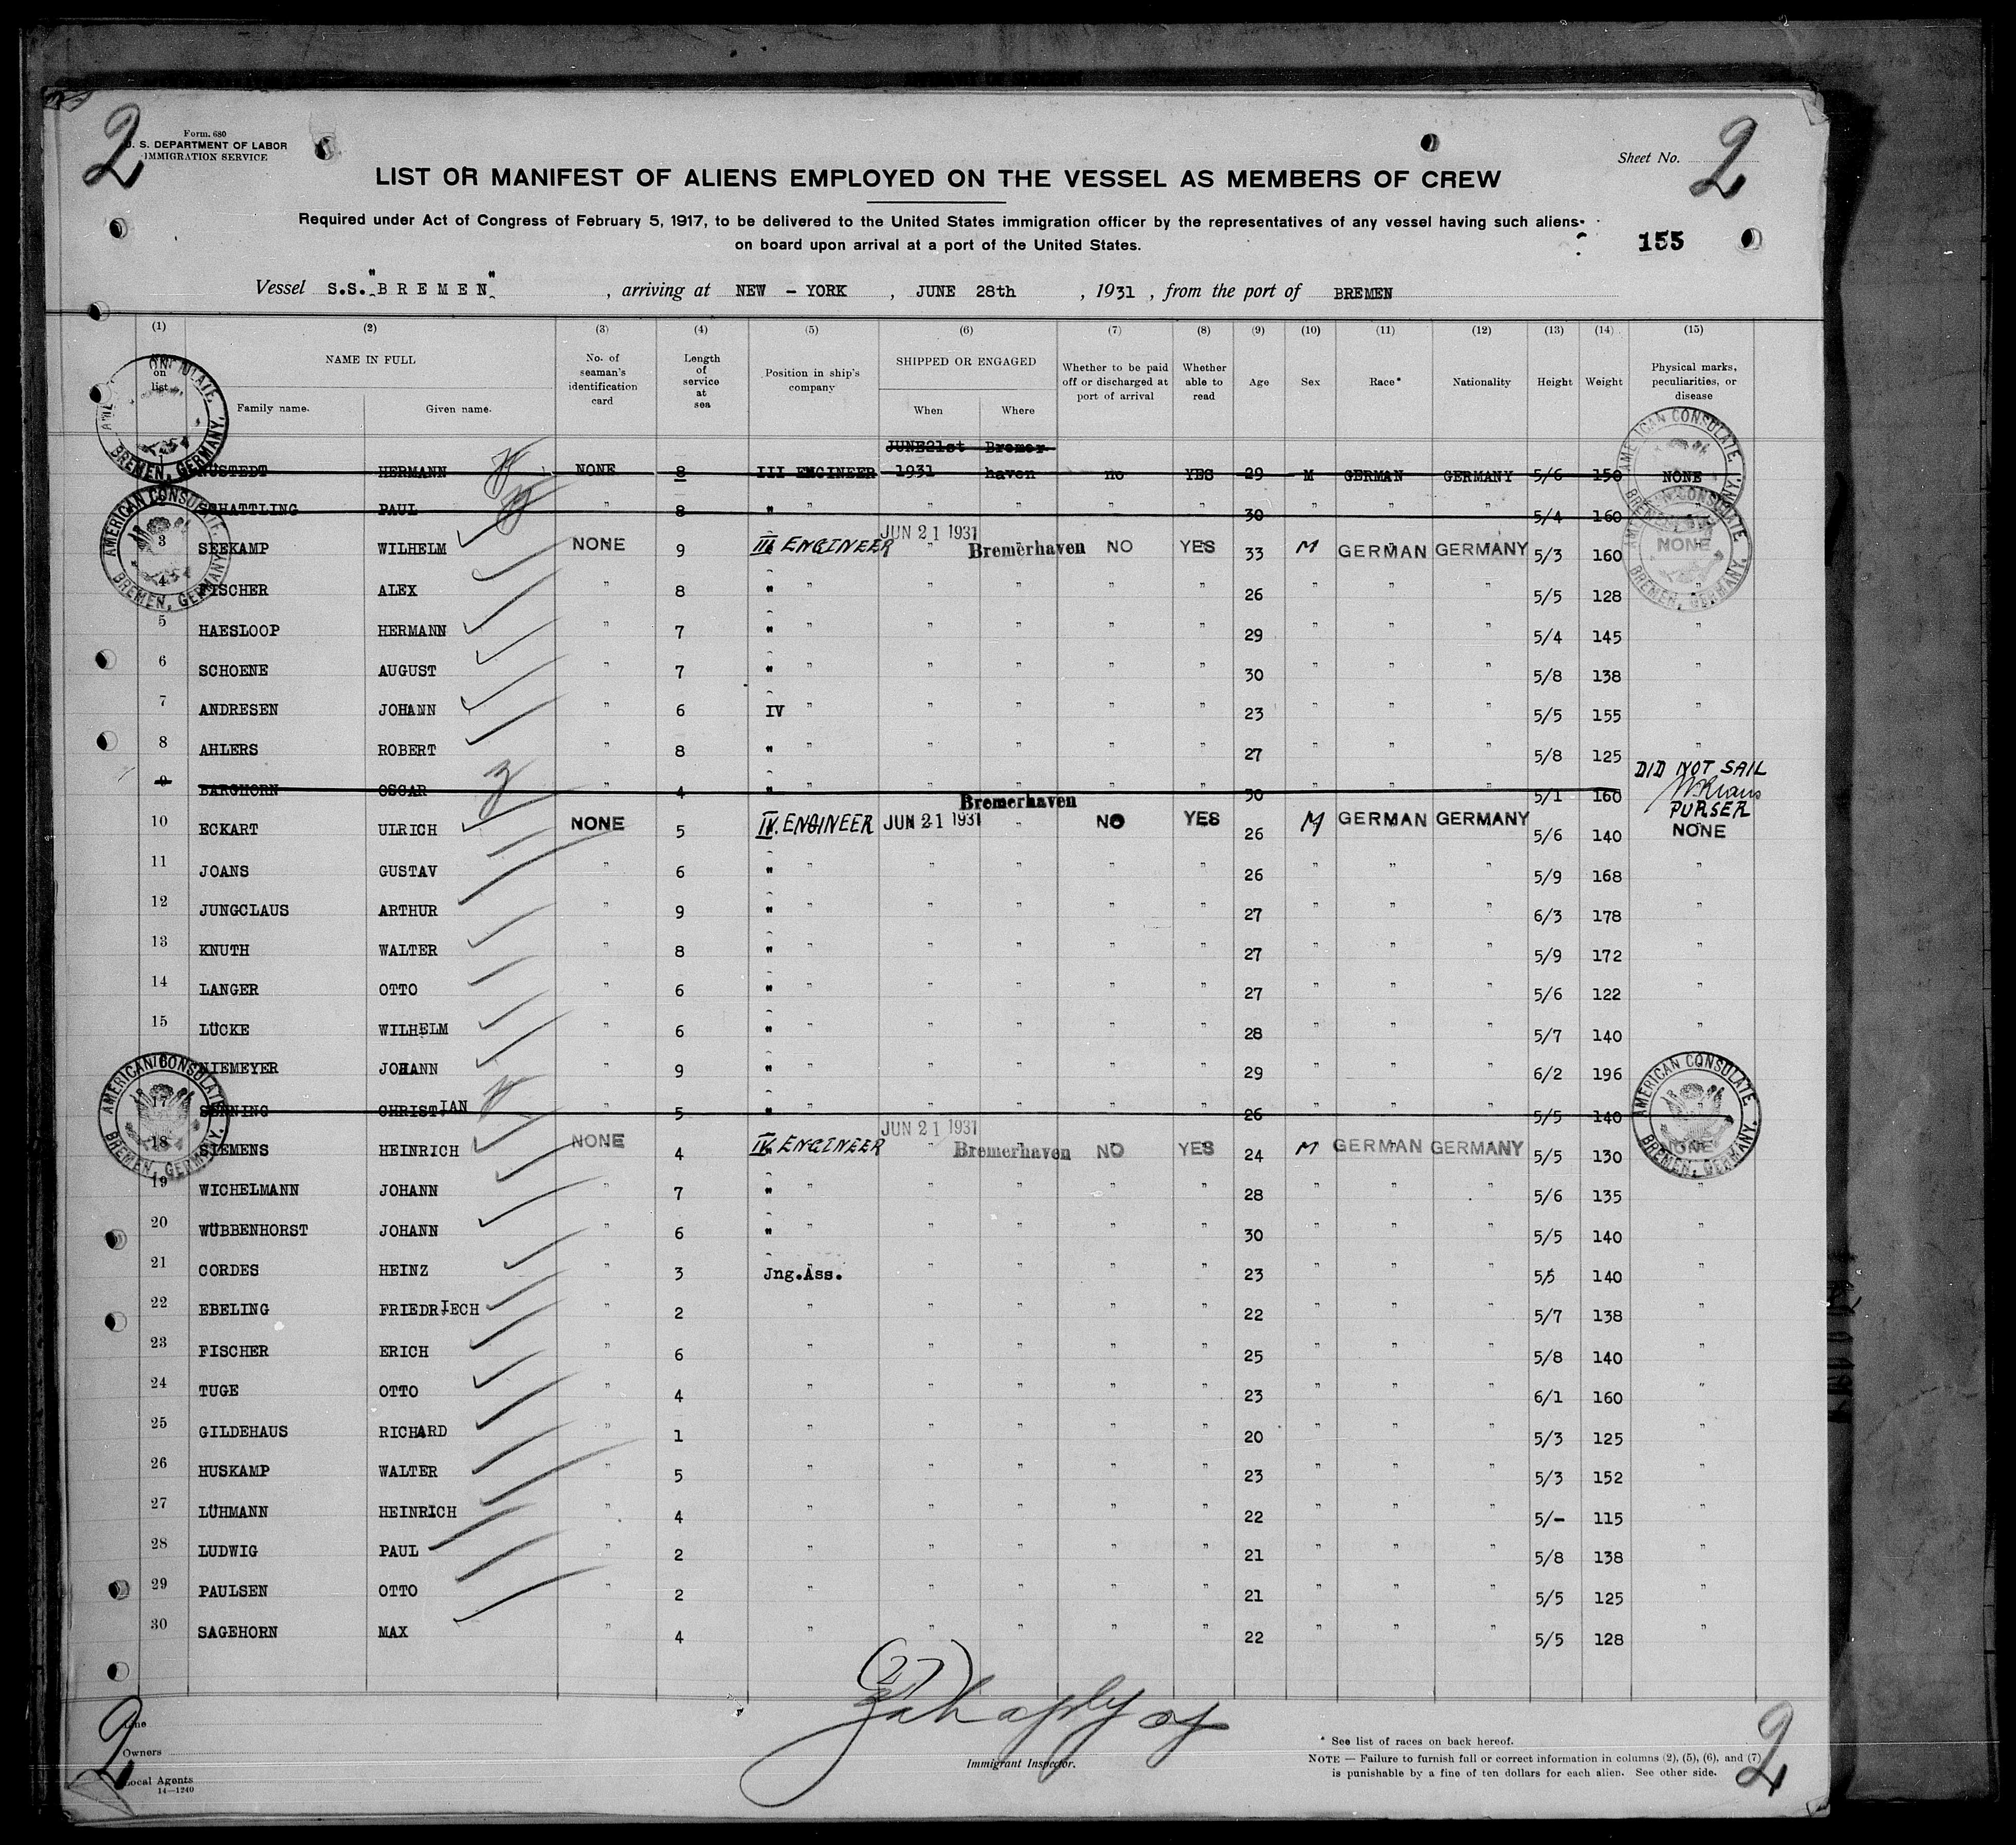 2
2
Form. 680
U. S. DEPARTMENT OF LABOR
IMMIGRATION SERVICE
Sheet No.
LIST OR MANIFEST OF ALIENS EMPLOYED ON THE VESSEL AS MEMBERS OF CREW
Required under Act of Congress of February 5, 1917, to be delivered to the United States immigration officer by the representatives of any vessel having such aliens
on board upon arrival at a port of the United States.
155
Vessel S.S. "BREMEN" , arriving at NEW - YORK , JUNE 28th , 1931 , from the port of BREMEN
(1) (2) (3) (4) (5) (6) (7) (8) (9) (10) (11) (12) (13) (14) (15)
on list NAME IN FULL No. of seaman's identification card Length of service at sea Position in ship's company SHIPPED OR ENGAGED Whether to be paid off or discharged at port of arrival Whether able to read Age Sex Race* Nationality Height Weight Physical marks, peculiarities, or disease
Family name. Given name. When Where
JUNE21st Bremer-
HERMANN NONE 8 III ENGINEER 1931 haven no YES 29 M GERMAN GERMANY 5/6 150 NONE
SCHATTLING PAUL " 8 " " " " " " 30 " " " 5/4 160
3 SEEKAMP WILHELM NONE 9 III ENGINEER JUN 21 1931 Bremerhaven NO YES 33 M GERMAN GERMANY 5/3 160 NONE
4 FISCHER ALEX " 8 " " " " " " 26 " " " 5/5 128 "
5 HAESLOOP HERMANN " 7 " " " " " " 29 " " " 5/4 145 "
6 SCHOENE AUGUST " 7 " " " " " " 30 " " " 5/8 138 "
7 ANDRESEN JOHANN " 6 IV " " " " " 23 " " " 5/5 155 "
8 AHLERS ROBERT " 8 " " " " " " 27 " " " 5/8 125 "
9 BARGHORN OSCAR " 4 " " " " " " 30 " " " 5/1 160 DID NOT SAIL
PURSER
10 ECKART ULRICH NONE 5 IV. ENGINEER JUN 21 1931 Bremerhaven NO YES 26 M GERMAN GERMANY 5/6 140 NONE
11 JOANS GUSTAV " 6 " " " " " " 26 " " " 5/9 168 "
12 JUNGCLAUS ARTHUR " 9 " " " " " " 27 " " " 6/3 178 "
13 KNUTH WALTER " 8 " " " " " " 27 " " " 5/9 172 "
14 LANGER OTTO " 6 " " " " " " 27 " " " 5/6 122 "
15 LÜCKE WILHELM " 6 " " " " " " 28 " " " 5/7 140 "
16 NIEMEYER JOHANN " 9 " " " " " " 29 " " " 6/2 196 "
17 CHRISTIAN " 5 " " " " " " 26 " " " 5/5 140 "
18 SIEMENS HEINRICH NONE 4 IV. ENGINEER JUN 21 1931 Bremerhaven NO YES 24 M GERMAN GERMANY 5/5 130 NONE
19 WICHELMANN JOHANN " 7 " " " " " " 28 " " " 5/6 135 "
20 WÜBBENHORST JOHANN " 6 " " " " " " 30 " " " 5/5 140 "
21 CORDES HEINZ " 3 Jng.Ass. " " " " 23 " " " 5/5 140 "
22 EBELING FRIEDRIECH " 2 " " " " " 22 " " " 5/7 138 "
23 FISCHER ERICH " 6 " " " " " 25 " " " 5/8 140 "
24 TUGE OTTO " 4 " " " " " 23 " " " 6/1 160 "
25 GILDEHAUS RICHARD " 1 " " " " " 20 " " " 5/3 125 "
26 HUSKAMP WALTER " 5 " " " " " 23 " " " 5/3 152 "
27 LÜHMANN HEINRICH " 4 " " " " " 22 " " " 5/- 115 "
28 LUDWIG PAUL " 2 " " " " " 21 " " " 5/8 138 "
29 PAULSEN OTTO " 2 " " " " " 21 " " " 5/5 125 "
30 SAGEHORN MAX " 4 " " " " " 22 " " " 5/5 128 "
AMERICAN CONSULATE, BREMEN, GERMANY.
AMERICAN CONSULATE, BREMEN, GERMANY.
AMERICAN CONSULATE, BREMEN, GERMANY.
AMERICAN CONSULATE, BREMEN, GERMANY.
AMERICAN CONSULATE, BREMEN, GERMANY.
(27)
Immigrant Inspector.
Line
Owners
Local Agents
14—1240
* See list of races on back hereof.
NOTE — Failure to furnish full or correct information in columns (2), (5), (6), and (7)
is punishable by a fine of ten dollars for each alien. See other side.
2
2